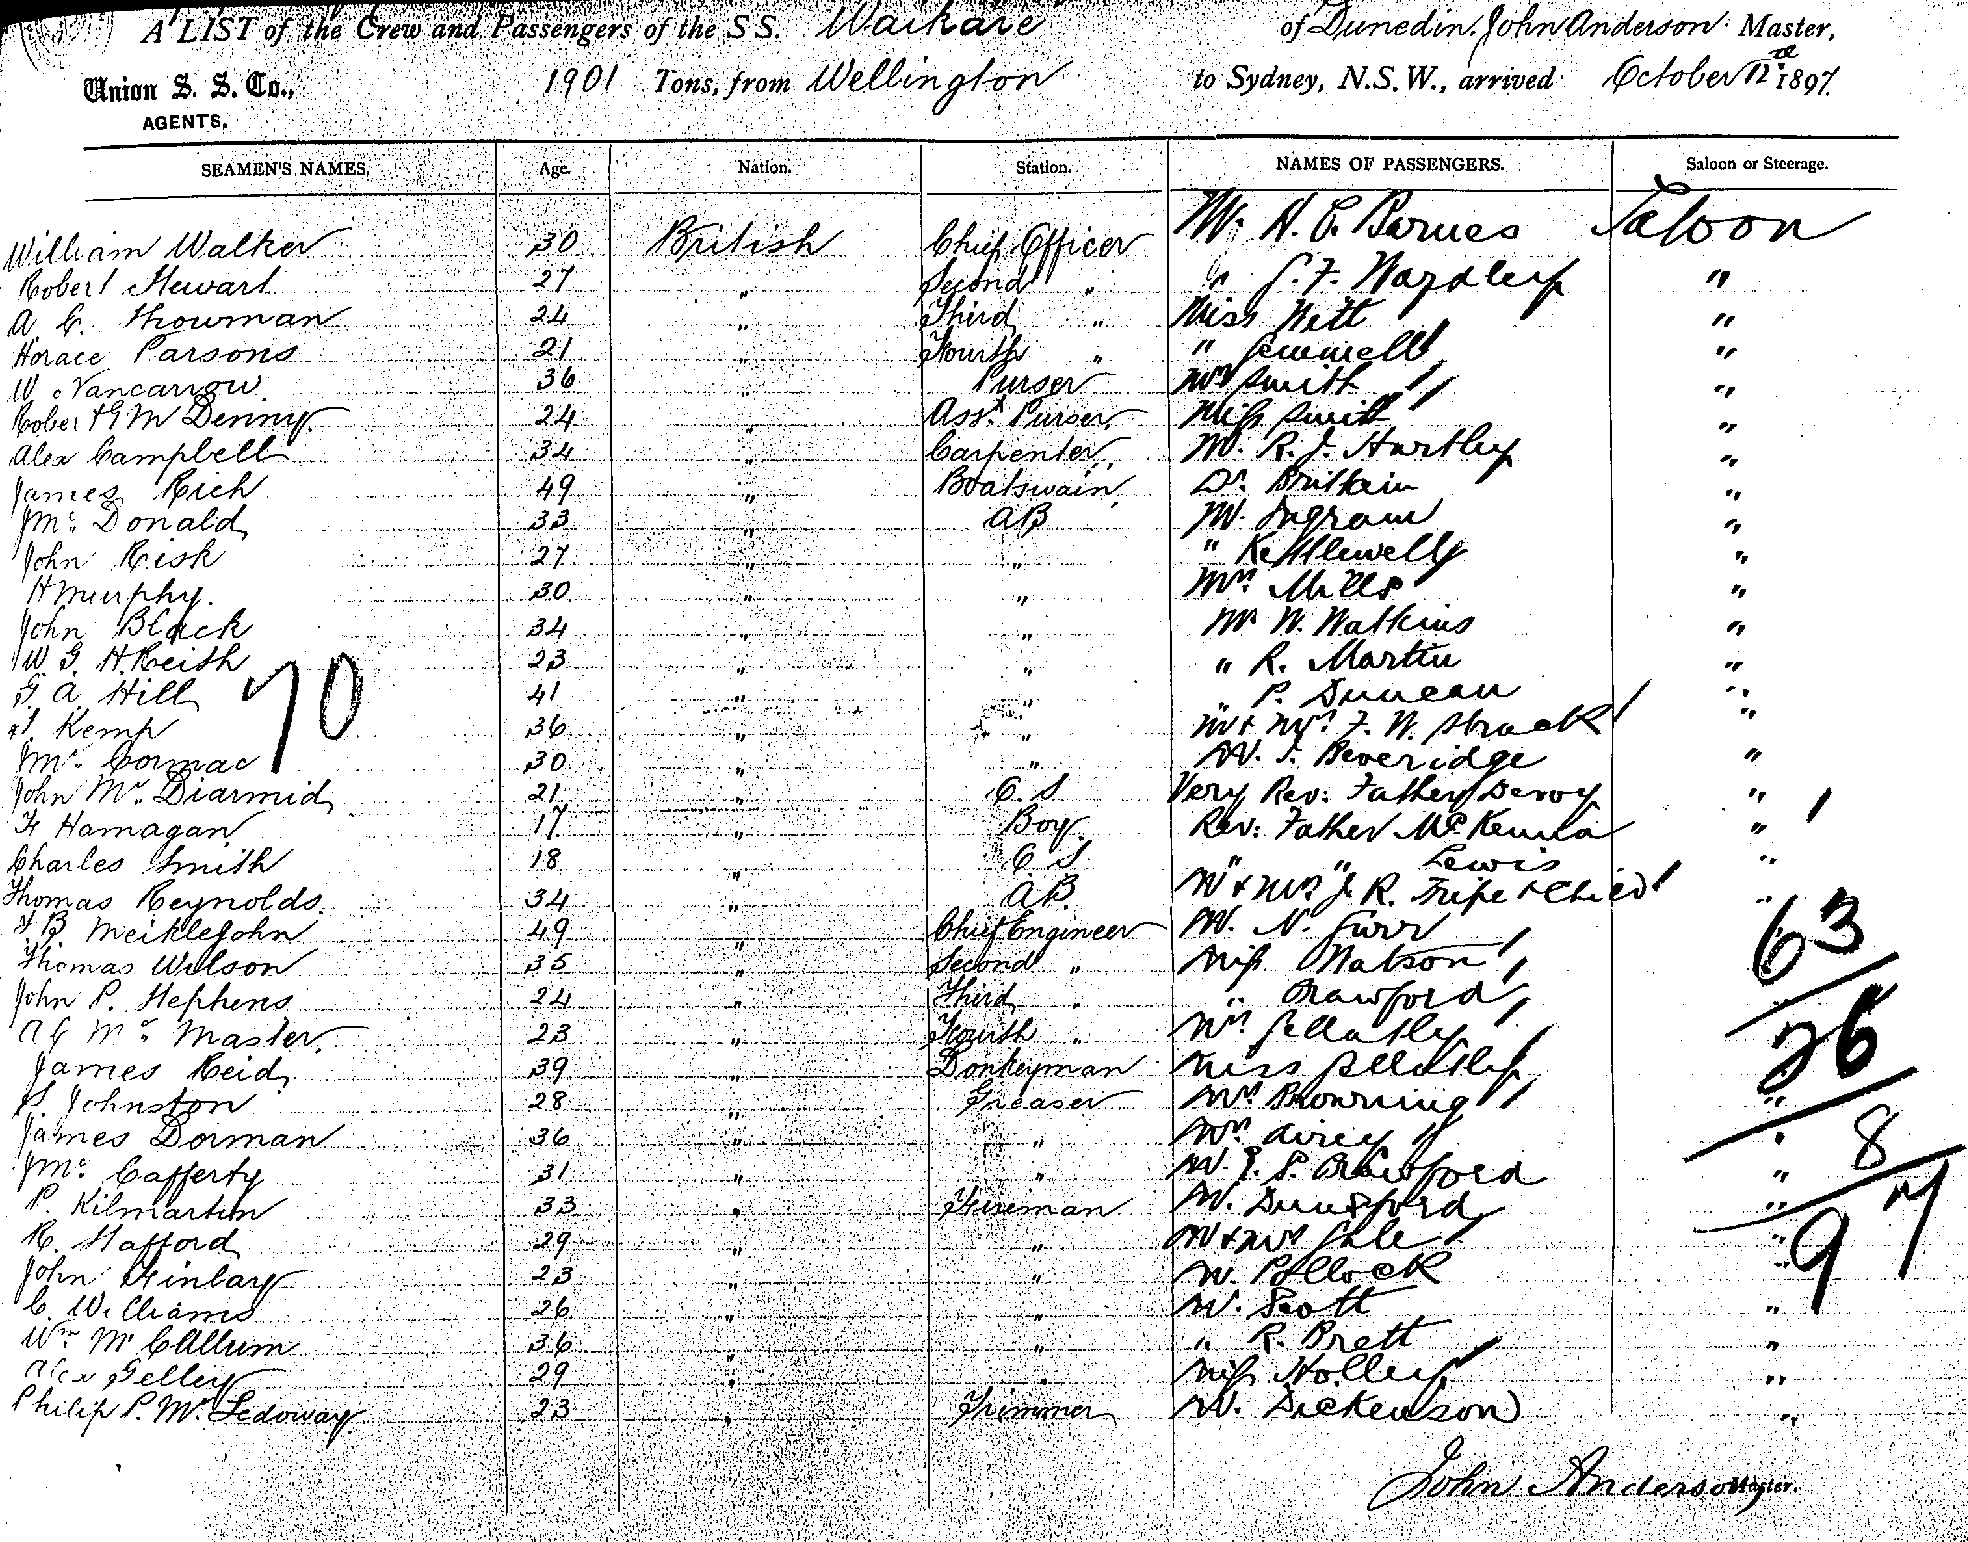 A LIST of the Crew and Passengers of the S S. Waikare of Dunedin. John Anderson Master,
Union S. S. Co., 1901 Tons, from Wellington to Sydney, N.S.W., arrived October 12th 1897.
AGENTS.
SEAMEN'S NAMES. Age. Nation. Station. NAMES OF PASSENGERS. Saloon or Steerage.
William Walker 30 British Chief Officer Mr. H. C. Barnes Saloon
Robert Stewart 27 " Second " " F. Wardley "
A. C. Showman 24 " Third " Miss Witt "
Horace Parsons 21 " Fourth " " Gemmell "
W. Nancarrow 36 " Purser Mrs Smith "
Robert G M Denny 24 " Asst. Purser Miss Smith "
Alex Campbell 34 " Carpenter Mr. R. J. Hartley "
James Rich 49 " Boatswain Dr. Brittain "
J Mc. Donald 33 " AB Mr. Ingram "
John Risk 27 " " " Kettlewell "
H Murphy. 30 " " Mrs. Mills "
John Black 34 " " Mr W. Watkins "
W G. H. Keith 23 " " " R. Martin "
G. A. Hill 41 " " " P. Duncan "
70
Kemp 36 " " Mr & Mrs. F. W. Strack "
J Mc. Cormac 30 " " Mr. J. Beveridge "
John Mc. Diarmid 21 " O. S Very Rev: Father Devoy "
F Hamagan 17 " Boy. Rev: Father McKenna "
Charles Smith 18 " O S " " Lewis "
Thomas Reynolds. 34 " AB. Mr & Mrs. J. R. Tripe & Child "
F B Meiklejohn 49 " Chief Engineer Mr. N. Furr 63
Thomas Wilson 35 " Second " Miss Watson
John P. Stephens 24 " Third " " Crawford
A G Mc. Master. 23 " Fourth " Mrs. Gellatly 26
James Reid 39 " Donkeyman Miss Gellatly
J. Johnston 28 " Greaser Mrs. Browning "
James Dorman 36 " " Mrs. Airey " 8
J Mc. Cafferty 31 " " Mr. J. P. Crawford "
P. Kilmartin 33 " Fireman Mr. Dunsford "
R. Stafford 29 " " Mr & Mrs Gale " 97
John Finlay 23 " " Mr. Pollock "
C. Williams 26 " " Mr. Scott "
Wm Mc Callum 36 " " " R. Brett "
Alex Gelley 29 " " Miss Holley "
Philip P. Mc. Ledoway 23 " Trimmer Mr. Dickenson "
John Anderson Master.